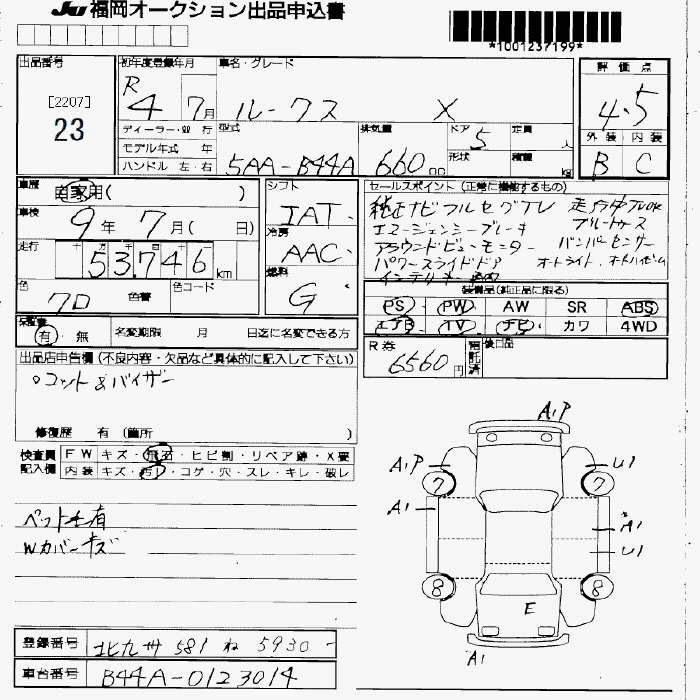 JU 福岡オークション出品申込書
*1001237199*
出品番号
[2207]
23
初年度登録年月
R
4 7月
車名・グレード
ルークス X
評価点
4.5
外装 内装
B C
ディーラー・並行
モデル年式 年
ハンドル 左・右
型式
5AA-B44A
排気量
660 CC
ドア 5
形状
定員 人
積載 kg
車歴
自家用( )
車検
9年 7月( 日)
走行
十万 万 千 百 十
53,746 km
色
クロ
色替
色コード
シフト
IAT
冷房
AAC
燃料
G
セールスポイント (正常に機能するもの)
純正ナビ フルセグTV 走行中TVOK
エマージェンシーブレーキ ブルートゥース
アラウンドビューモニター バンパーセンサー
パワースライドドア オートライト・オートハイビーム
インテリキー
装備品(純正品に限る)
PS PW AW SR ABS
エアB TV ナビ カワ 4WD
保証書
有・無
名変期限 月 日迄に名変できる方
R券
6560円
預託済
後日品
出品店申告欄 (不良内容・欠品など具体的に記入して下さい)
。コット&バイザー
修復歴 有 (箇所 )
検査員記入欄
FW キズ・飛石・ヒビ割・リペア跡・X要
内装 キズ・汚れ・コゲ・穴・スレ・キレ・破レ
ペット毛有
Wカバーキズ
A1P
A1P U1
7 7
A1 A1
U1
8 8
E
A1
登録番号
北九州 581 ね 5930
車台番号
B44A-0123014